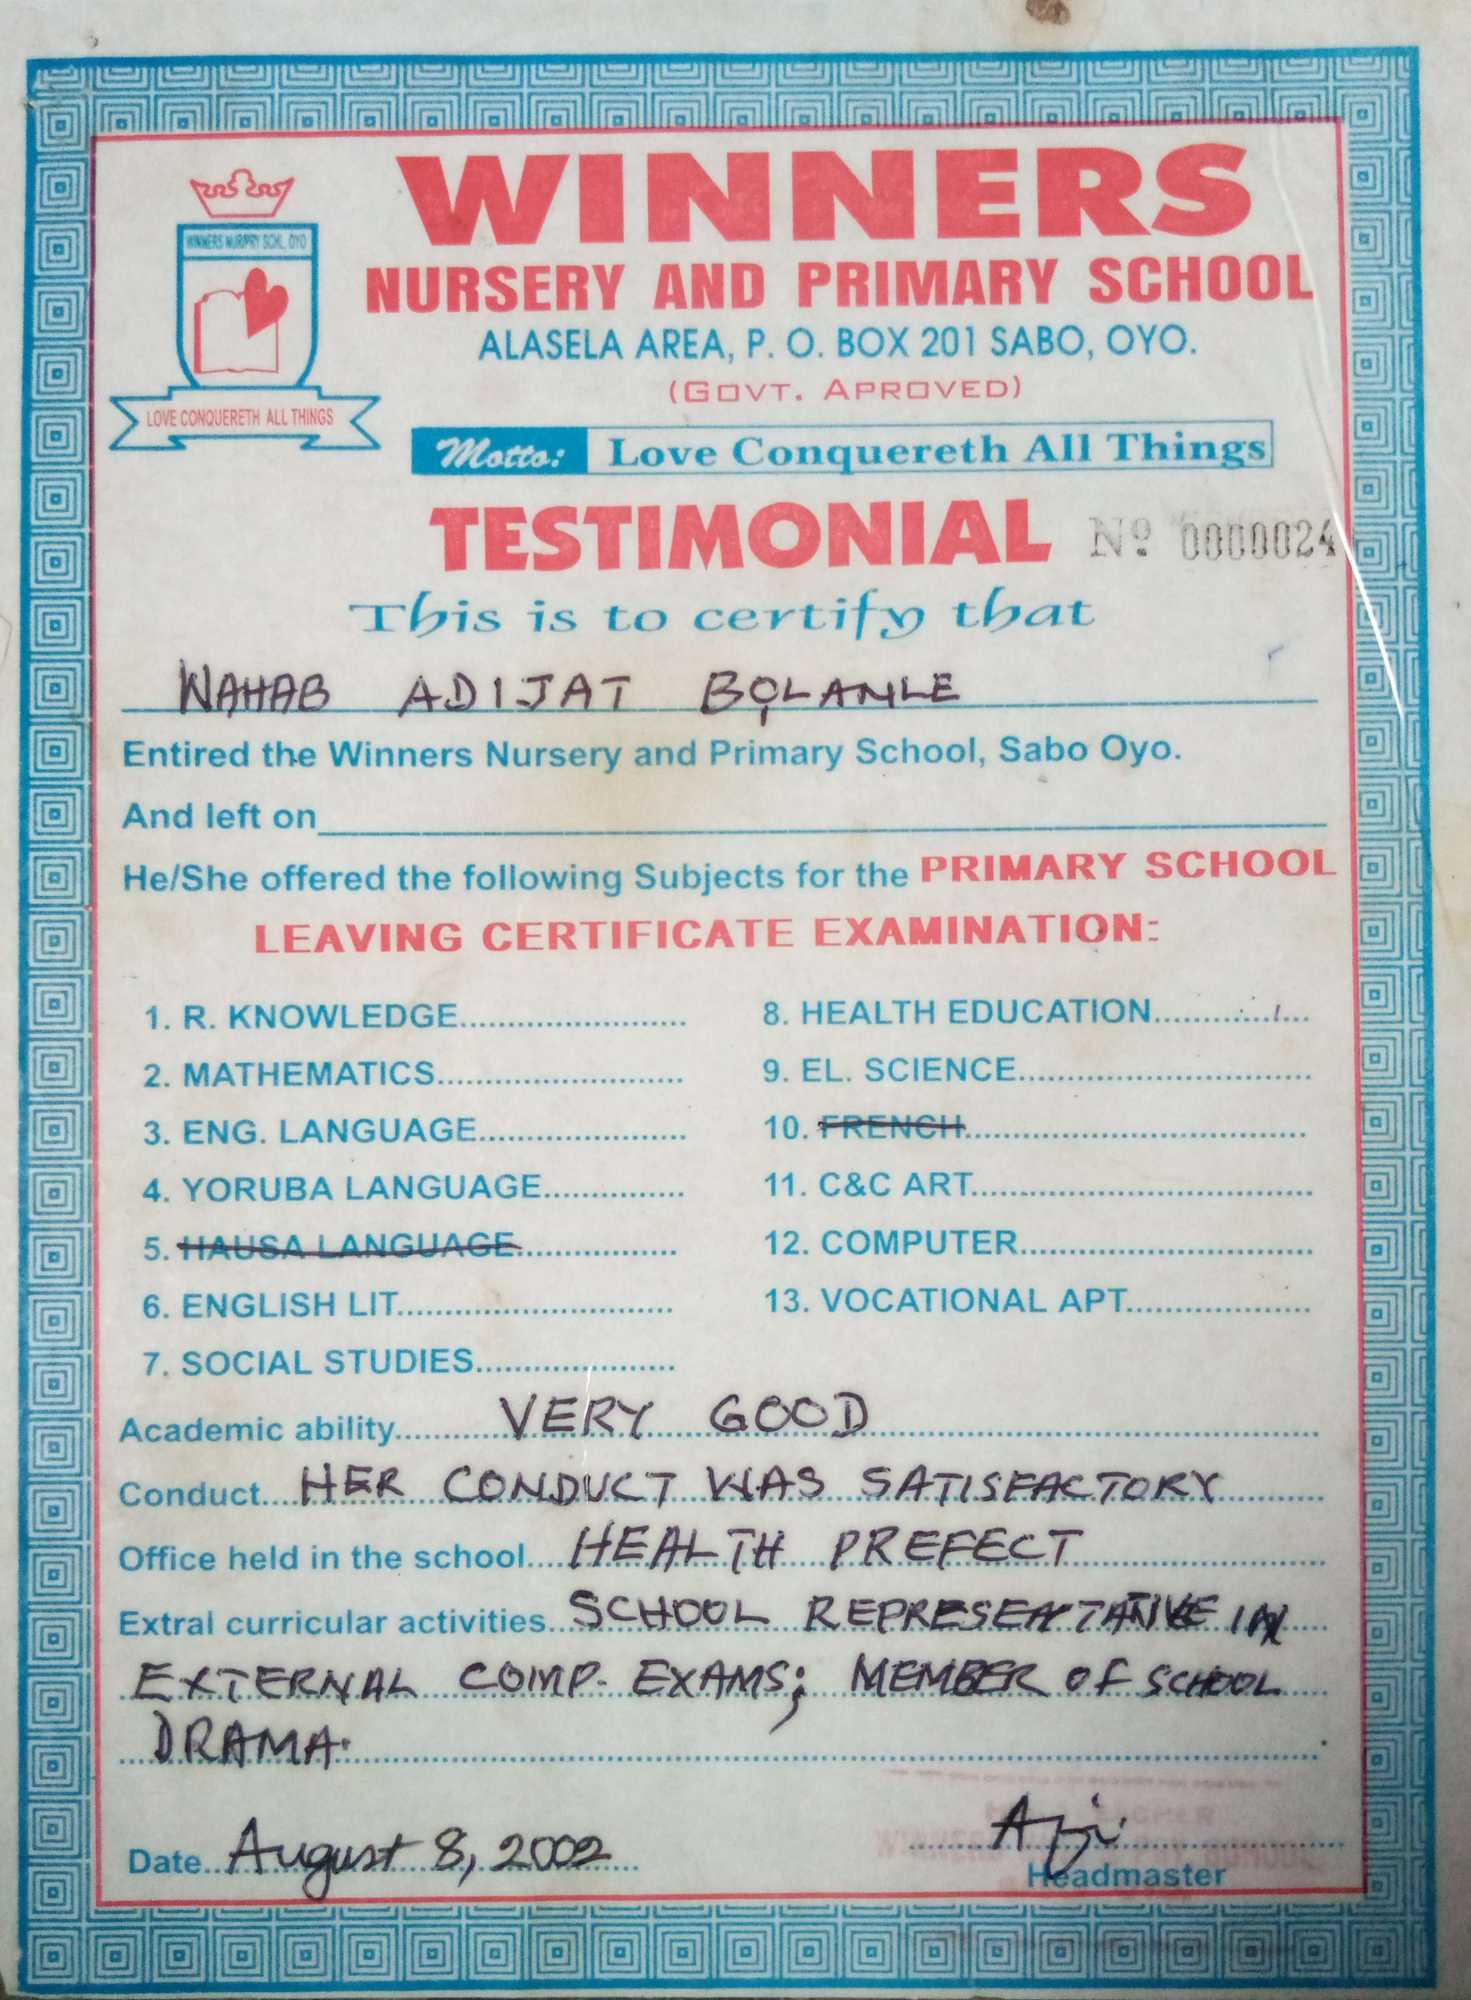 WINNERS NUR/PRY SCHL. OYO
LOVE CONQUERETH ALL THINGS
WINNERS
NURSERY AND PRIMARY SCHOOL
ALASELA AREA, P. O. BOX 201 SABO, OYO.
(GOVT. APROVED)
Motto: Love Conquereth All Things
TESTIMONIAL Nº 0000024
This is to certify that
WAHAB ADIJAT BỌLANLE
Entired the Winners Nursery and Primary School, Sabo Oyo.
And left on
He/She offered the following Subjects for the PRIMARY SCHOOL
LEAVING CERTIFICATE EXAMINATION:
1. R. KNOWLEDGE........................
2. MATHEMATICS..........................
3. ENG. LANGUAGE......................
4. YORUBA LANGUAGE...............
5. HAUSA LANGUAGE.................
6. ENGLISH LIT.............................
7. SOCIAL STUDIES.....................
8. HEALTH EDUCATION................
9. EL. SCIENCE...............................
10. FRENCH...................................
11. C&C ART...................................
12. COMPUTER..............................
13. VOCATIONAL APT...................
Academic ability.......... VERY GOOD
Conduct.... HER CONDUCT WAS SATISFACTORY
Office held in the school.... HEALTH PREFECT
Extral curricular activities... SCHOOL REPRESENTATIVE IN
EXTERNAL COMP. EXAMS; MEMBER OF SCHOOL
DRAMA.
Date.. August 8, 2002
Headmaster